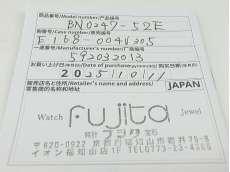 製品番号/Model number/产品编号
BN0247-52E
側番号/Case number/表壳编号
E168-004V205
一連番号/Manufacturer's number/厂商编号
592032013
お買い上げ日/Date of purchase/购买日期
2025/10/11
販売店名と住所/Retailer's name and address/
零售商的名称和地址
JAPAN
Watch Fujita Jewel
時計 フジタ 宝石
〒620-0922 京都府福知山市岩井79-8
イオン福知山店1F TEL0773-23-4369